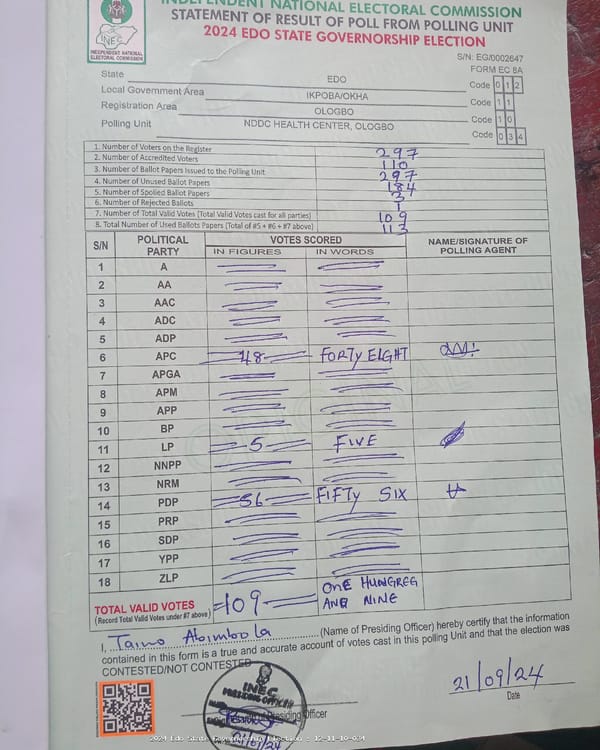 INDEPENDENT NATIONAL ELECTORAL COMMISSION
STATEMENT OF RESULT OF POLL FROM POLLING UNIT
2024 EDO STATE GOVERNORSHIP ELECTION
INEC
INDEPENDENT NATIONAL
ELECTORAL COMMISSION
S/N: EG/0002647
FORM EC 8A
State EDO Code 0 1 2
Local Government Area IKPOBA/OKHA Code 1 1
Registration Area OLOGBO Code 1 0
Polling Unit NDDC HEALTH CENTER, OLOGBO Code 0 3 4
1. Number of Voters on the Register 297
2. Number of Accredited Voters 110
3. Number of Ballot Papers Issued to the Polling Unit 297
4. Number of Unused Ballot Papers 184
5. Number of Spoiled Ballot Papers 3
6. Number of Rejected Ballots 1
7. Number of Total Valid Votes (Total Valid Votes cast for all parties) 109
8. Total Number of Used Ballots Papers (Total of #5 + #6 + #7 above) 113
S/N POLITICAL PARTY VOTES SCORED NAME/SIGNATURE OF POLLING AGENT
IN FIGURES IN WORDS
1 A
2 AA
3 AAC
4 ADC
5 ADP
6 APC 48 FORTY EIGHT
7 APGA
8 APM
9 APP
10 BP
11 LP 5 FIVE
12 NNPP
13 NRM
14 PDP 56 FIFTY SIX
15 PRP
16 SDP
17 YPP
18 ZLP
TOTAL VALID VOTES 109 ONE HUNGREG
(Record Total Valid Votes under #7 above) ANG NINE
I, Taiwo Abimbola (Name of Presiding Officer) hereby certify that the information
contained in this form is a true and accurate account of votes cast in this polling Unit and that the election was
CONTESTED/NOT CONTESTED
INEC
PRESIDING OFFICER
21/09/24
Date
Presiding Officer
2024 Edo State Governorship Election